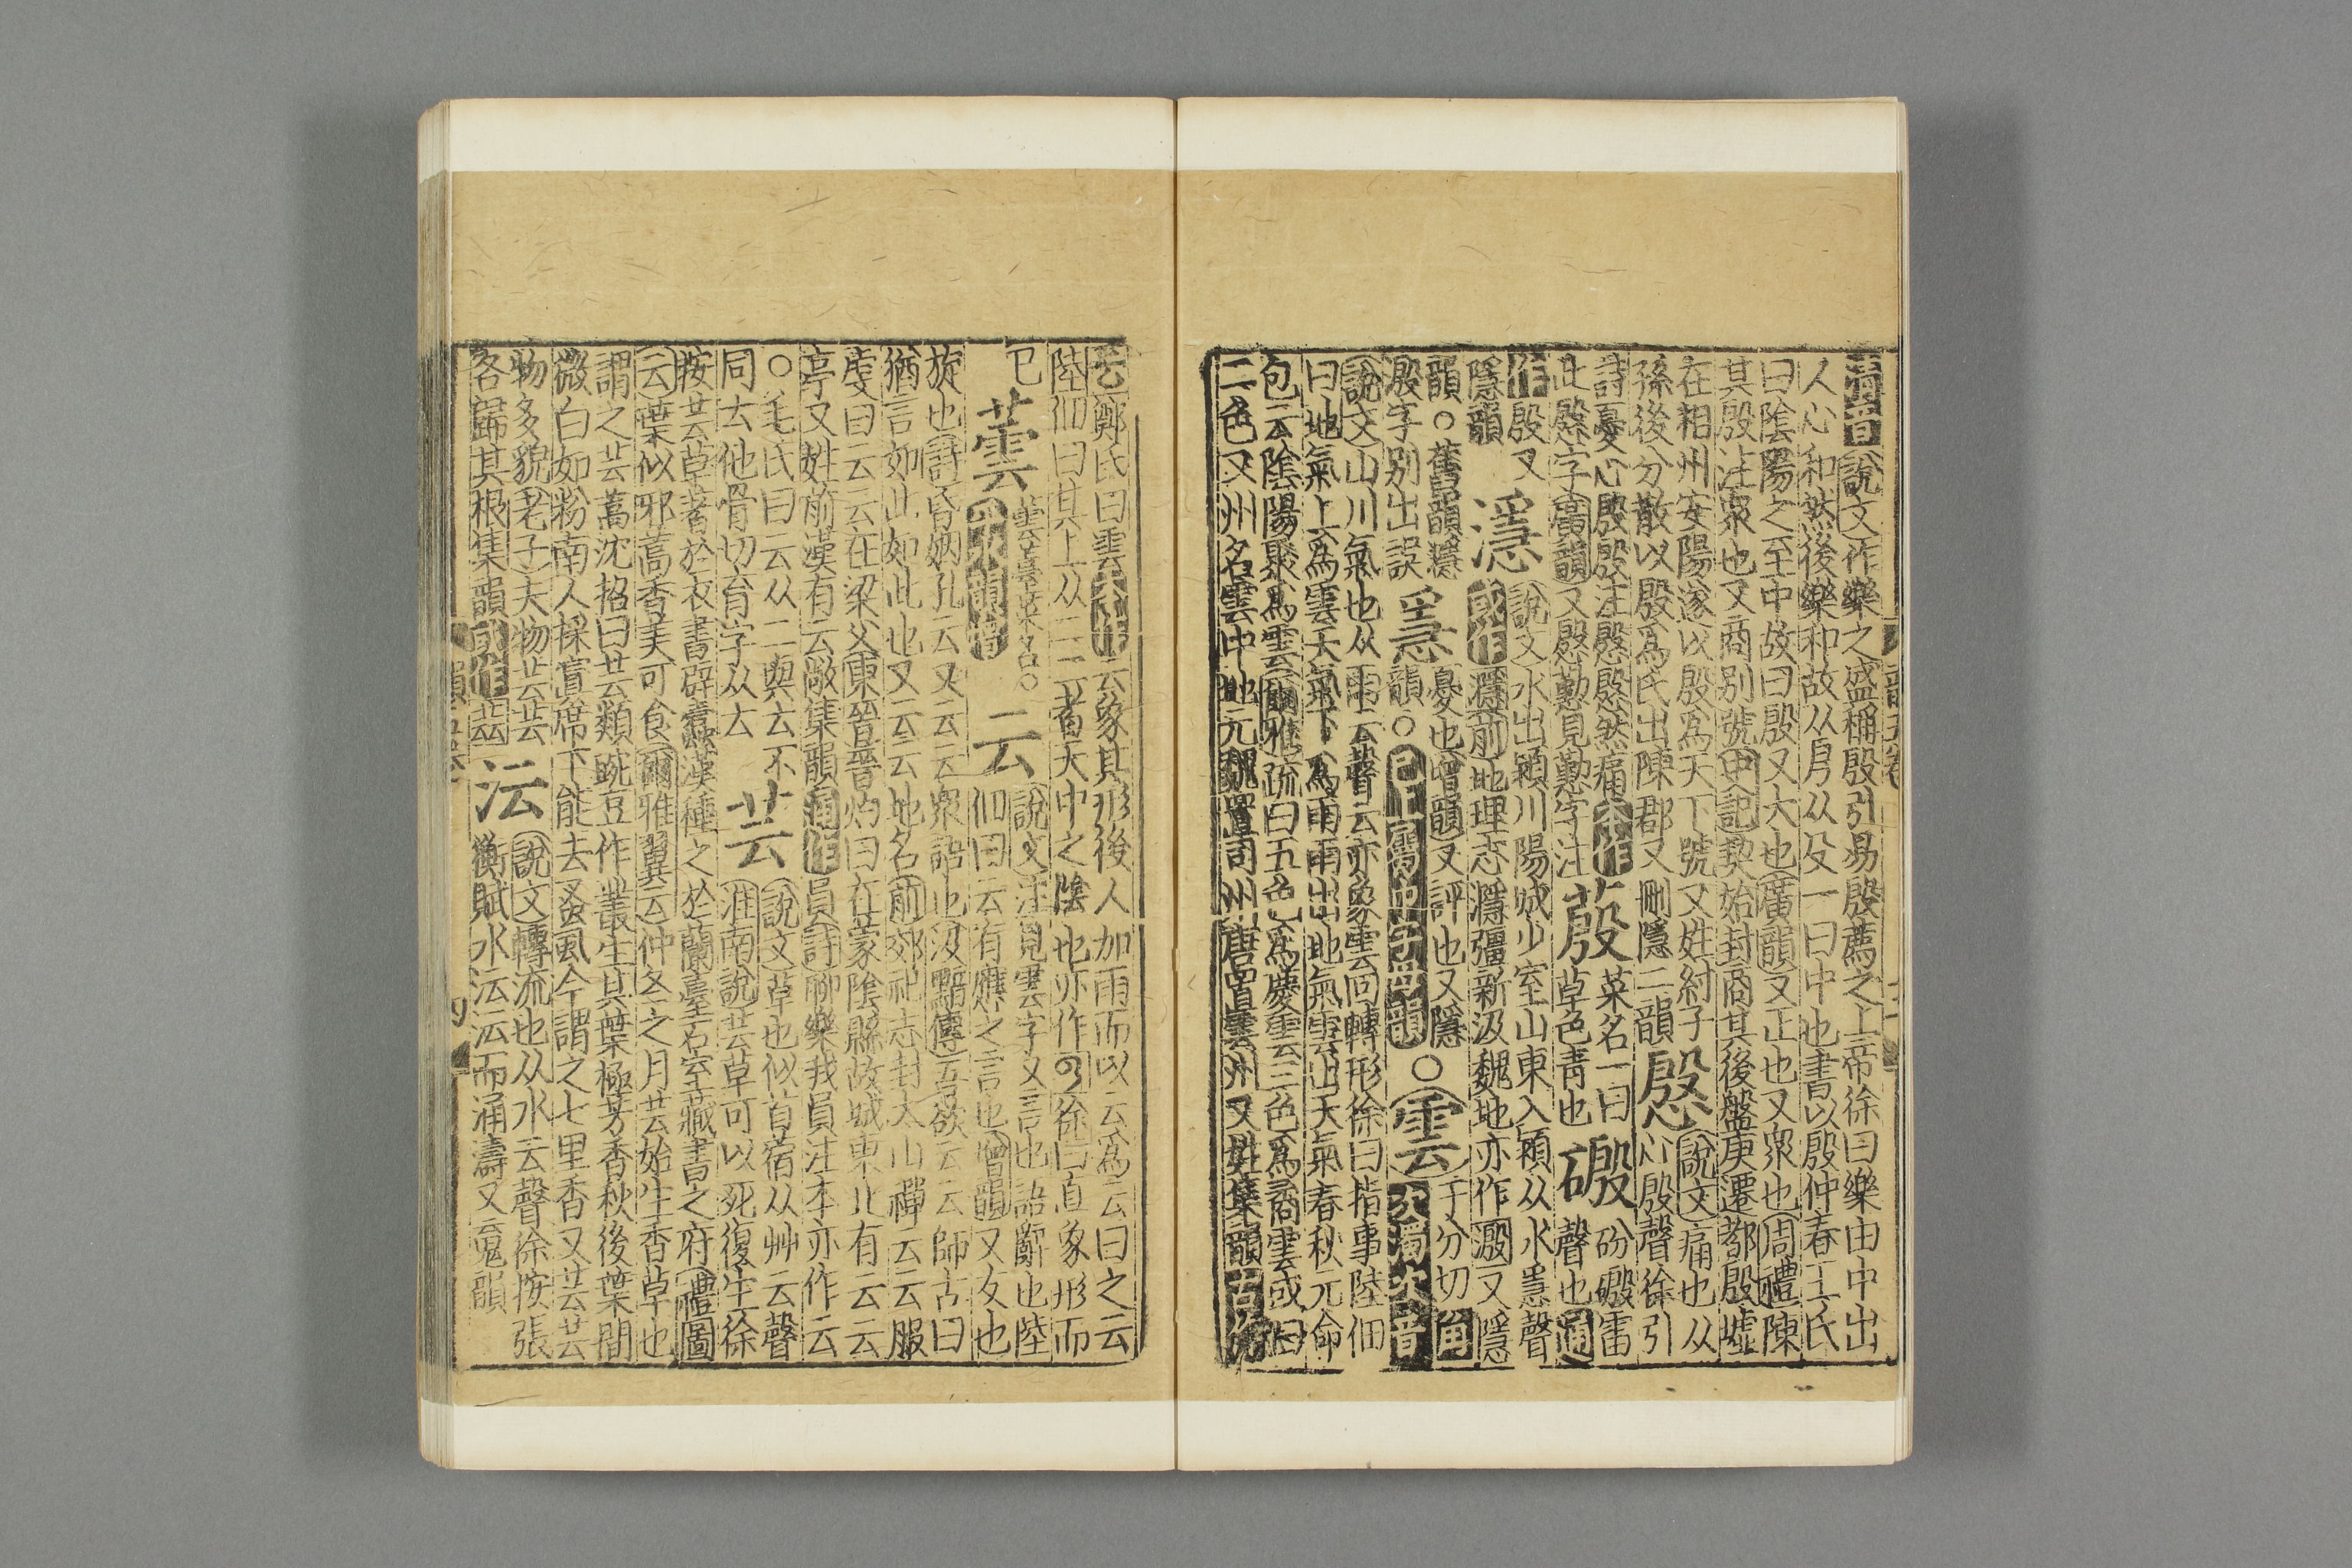 清音說文作樂之盛稱殷引易殷薦之上帝徐曰樂由中出
人心和然後樂和故从㐆从殳一曰中也書以殷仲春王氏
曰陰陽之至中故曰殷又大也廣韻又正也又衆也周禮陳
其殷注衆也又商别號史記契始封商其後盤庚遷都殷墟
在相州安陽遂以殷爲天下號又姓紂子
孫後分散以殷爲氏出陳郡又刪隱二韻
慇
說文痛也从
心殷聲徐引
詩憂心殷殷注慇慇然痛本作
此慇字廣韻又慇懃見懃字注
蒑
菜名一曰
草色青也
磤
砏磤雷
聲也通
作殷又
隱韻
濦
說文水出潁川陽城少室山東入潁从水㥯聲
或作㶏前地理志㶏彊新汲魏地亦作溵又隱
韻○舊韻濦
溵字别出誤
㥯
憂也增韻又評也又隱
韻○已上屬巾字母韻
○雲
于分切角
次濁次音
說文山川氣也从雨云聲云亦象雲回轉形徐曰指事陸佃
曰地氣上爲雲天氣下爲雨雨出地氣雲出天氣春秋元命
包云陰陽聚爲雲爾雅疏曰五色爲慶雲三色爲矞雲或曰
二色又州名雲中地元魏置司州唐置雲州又姓集韻古作
云鄭氏曰雲本作云象其形後人加雨而以云爲云曰之云
陸佃曰其上从二二者天中之陰也亦作徐曰直象形而
已
蕓
蕓薹菜名○
平水韻增
云
說文注見雲字又言也語辭也陸
佃曰云有應之言也增韻又友也
旋也詩昏姻孔云又云云衆語也汲黯傳吾欲云云師古曰
猶言如此如此也又云云地名前郊祀志封太山禪云云服
虔曰云云在梁父東晉晉灼曰在蒙陰縣故城東北有云云
亭又姓前漢有云敞集韻通作員詩聊樂我員注本亦作云
○毛氏曰云从二與厶不
同厶他骨切育字从厶
芸
說文草也似苜蓿从艸云聲
淮南說芸草可以死復生徐
按芸草著於衣書辟蠹漢種之於蘭臺石室藏書之府禮圖
云葉似邪蒿香美可食爾雅翼云仲冬之月芸始生香草也
謂之芸蒿沈括曰芸類豌豆作叢生其葉極芳香秋後葉間
微白如粉南人採寘席下能去蚤蝨今謂之七里香又芸芸
物多貌老子夫物芸芸
各歸其根集韻或作
沄
說文轉流也从水云聲徐按張
衡賦水沄沄而涌濤又魂韻